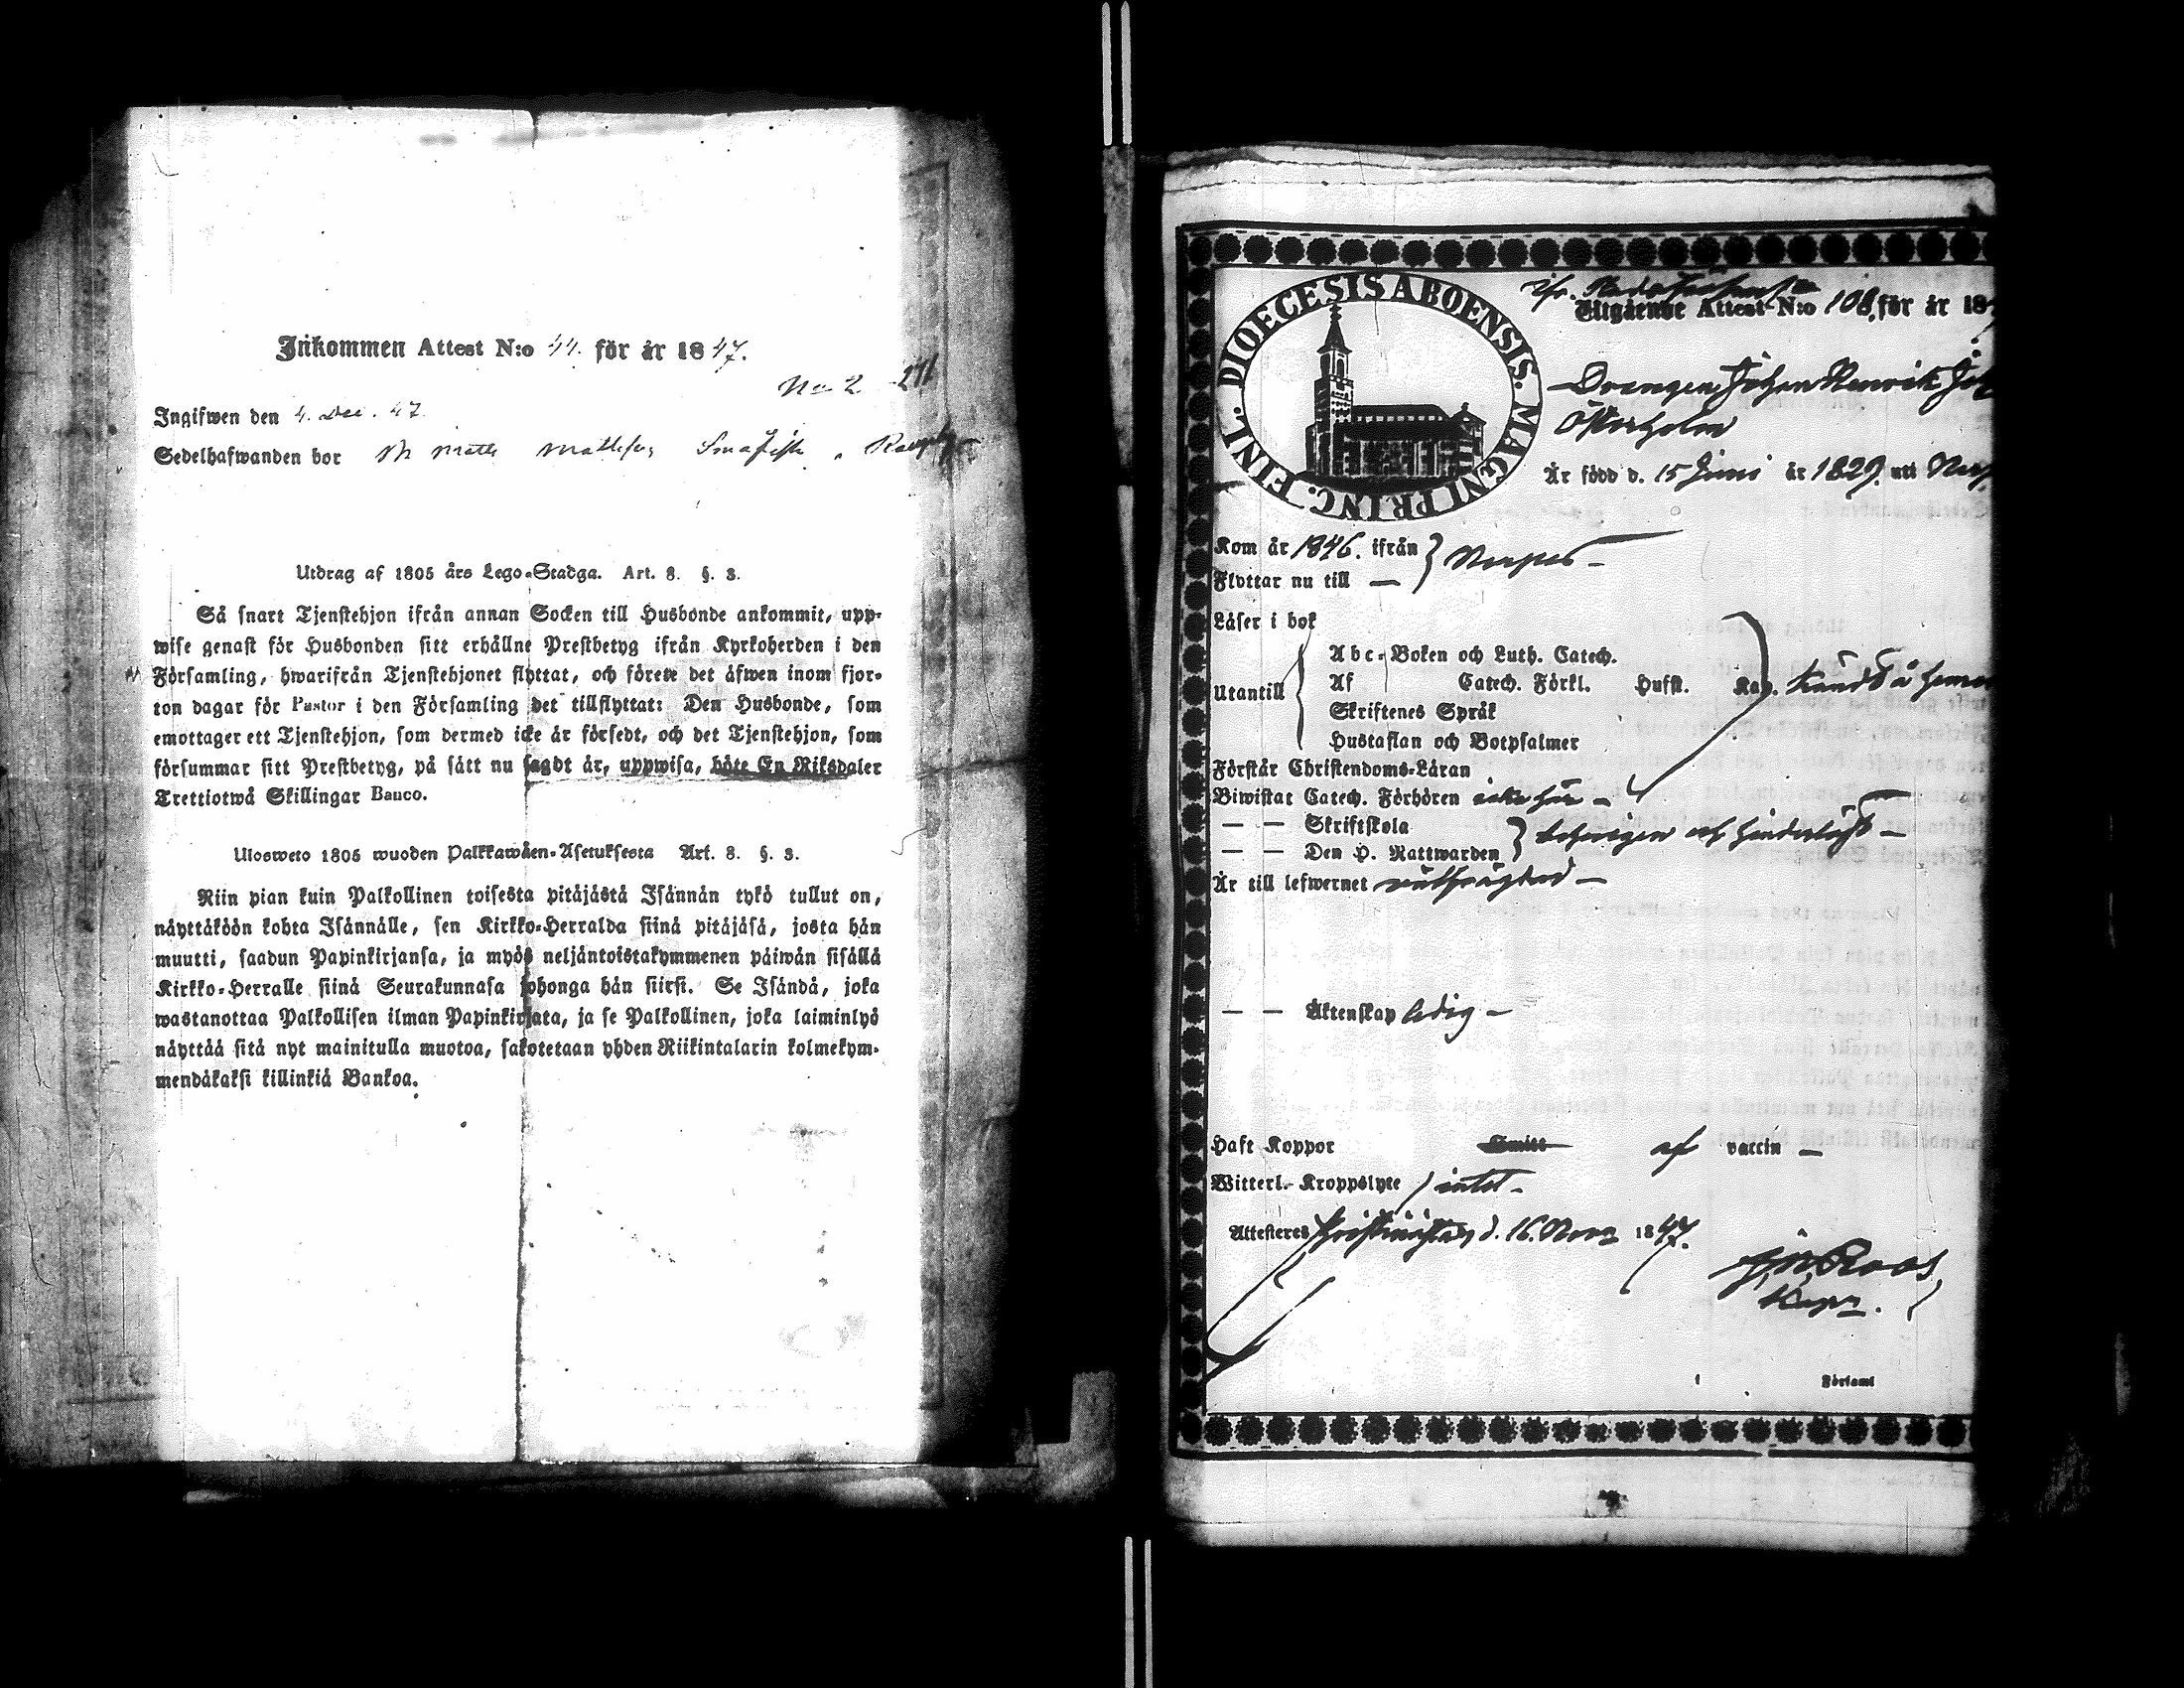 Inkommen Attest N:o 44. för år 1847.
No 2 276
Ingifwen den 4. Dec. 47
Sedelhafwanden bor
Utdrag af 1805 års Lego-Stadga. Art. 8. §. 3.
Så snart Tjenstehjon ifrån annan Socken till Husbonde ankommit, upp-
wise genast för Husbonden sitt erhållne Prestbetyg ifrån Kyrkoherden i den
Församling, hwarifrån Tjenstehjonet flyttat, och förete det äfwen inom fjor-
ton dagar för Pastor i den Församling det tillflyttat: Den Husbonde, som
emottager ett Tjenstehjon, som dermed icke är försedt, och det Tjenstehjon, som
försummar sitt Prestbetyg, på sätt nu sagdt är, uppwisa, böte En Riksdaler
Trettiotwå Skillingar Banco.
Ulosweto 1805 wuoden Palkkawäen-Asetuksesta Art. 8. §. 3.
Niin pian kuin Palkollinen toisesta pitäjästä Isännän tykö tullut on,
näyttäköön kohta Isännälle, sen Kirkko-Herralda siinä pitäjäsä, josta hän
muutti, saadun Papinkirjansa, ja myös neljäntoistakymmenen päiwän sisällä
Kirkko-Herralle siinä Seurakunnasa johonga hän siirsi. Se Isändä, joka
wastanottaa Palkollisen ilman Papinkirjata, ja se Palkollinen, joka laiminlyö
näyttää sitä nyt mainitulla muotoa, sakotetaan yhden Riikintalarin kolmekym-
mendäkaksi killinkiä Bankoa.
DIOECESIS ABOENSIS. MAGNI PRINC. FINL.
Utgående Attest N:o 108 för år 18
Drängen Johan Henrik
Österholm
Är född d. 15 Juni år 1829. uti
Kom år 1846. ifrån } Nerpes
Flyttar nu till —
Läser i bok
Utantill
Abc-Boken och Luth. Catech.
Af Catech. Förkl. Husst. Kap. känds å
Skriftenes Språk
Hustaflan och Botpsalmer
Förstår Christendoms-Läran
Biwistat Catech. Förhören icke här —
— — Skriftskola
— — Den H. Nattwarden } behörigen och hinderlöst —
Är till lefwernet wälfrägdad —
— — Äktenskap ledig —
Haft Koppor Smitt af vaccin —
Witterl. Kroppslyte intet —
Attesteras Kristinestad d. 16. Nov. 1847.
Roos
Kapn.
Församl